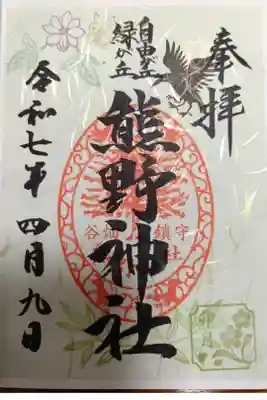 奉拝
自由が丘
緑が丘
熊野神社
令和七年 四月九日
谷畑
鎮守
社
卯月